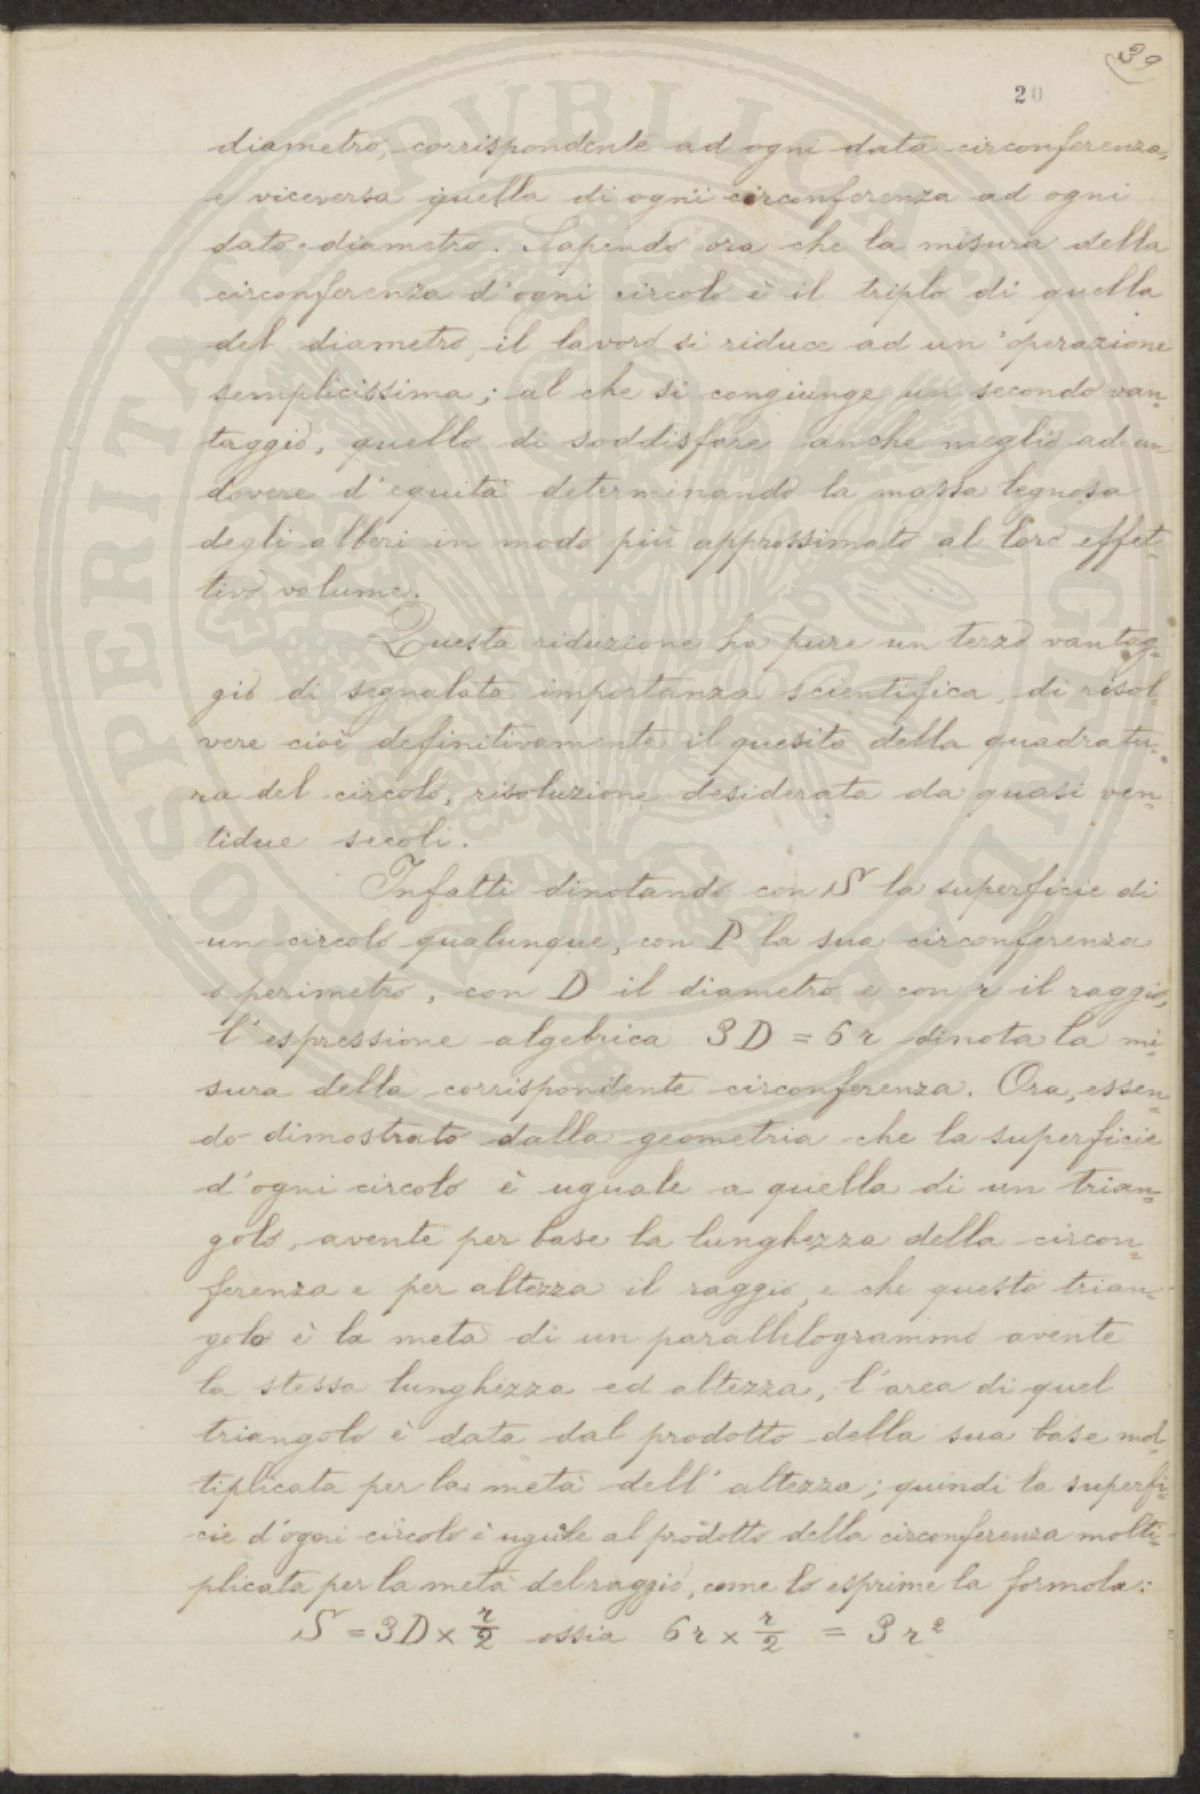 39
20
diametro, corrispondente ad ogni data circonferenza,
e viceversa quella di ogni circonferenza ad ogni
dato diametro. Sapendo ora che la misura della
circonferenza d'ogni circolo è il triplo di quella
del diametro, il lavoro si riduce ad un'operazione
semplicissima; al che si congiunge un secondo van=
taggio, quello di soddisfare anche meglio ad un
dovere d'equità determinando la massa legnosa
degli alberi in modo più approssimato al loro effet=
tivo volume.
Questa riduzione ha pure un terzo vantag=
gio di segnalata importanza scientifica, di risol=
vere cioè definitivamente il quesito della quadratu=
ra del circolo, risoluzione desiderata da quasi ven=
tidue secoli.
Infatti dinotando con S la superficie di
un circolo qualunque, con P la sua circonferenza
o perimetro, con D il diametro e con r il raggio,
l'espressione algebrica 3D = 6r dinota la mi=
sura della corrispondente circonferenza. Ora, essen=
do dimostrato dalla geometria che la superficie
d'ogni circolo è uguale a quella di un trian=
golo, avente per base la lunghezza della circon=
ferenza e per altezza il raggio, e che questo trian=
golo è la metà di un parallelogrammo avente
la stessa lunghezza ed altezza, l'area di quel
triangolo è data dal prodotto della sua base mol=
tiplicata per la metà dell'altezza; quindi la superfi=
cie d'ogni circolo è uguale al prodotto della circonferenza molti=
plicata per la metà del raggio, come lo esprime la formola:
S = 3D × r/2 ossia 6r × r/2 = 3r²
PROSPERITATI PVBLICAE AVGENDAE